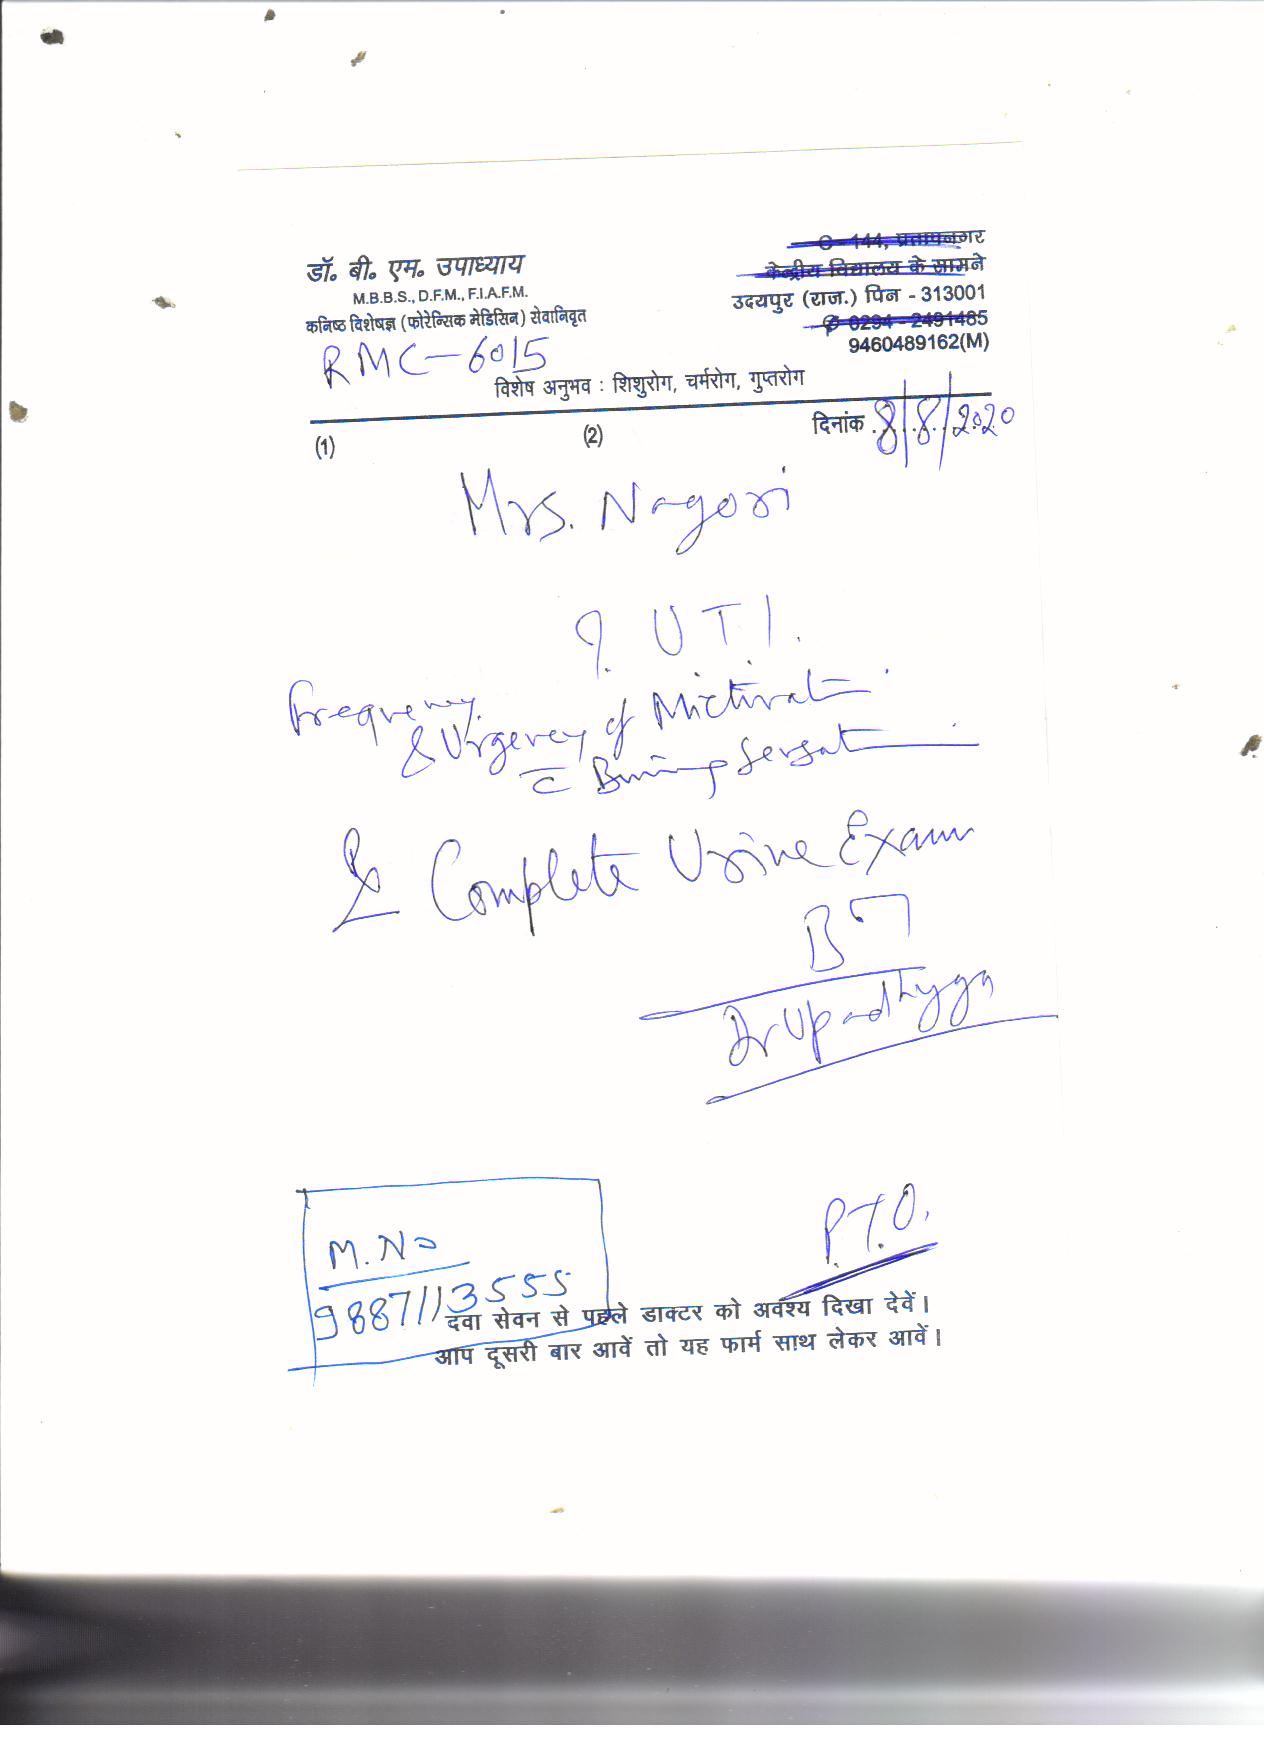 डॉ. बी. एम. उपाध्याय
M.B.B.S., D.F.M., F.I.A.F.M.
कनिष्ठ विशेषज्ञ (फोरेन्सिक मेडिसिन) सेवानिवृत
RMC-6015
C - 144, प्रतापनगर
केन्द्रीय विद्यालय के सामने
उदयपुर (राज.) पिन - 313001
✆ 0294 - 2491485
9460489162(M)
विशेष अनुभव : शिशुरोग, चर्मरोग, गुप्तरोग
दिनांक 8/8/2020
(1) (2)
Mrs. Nagori
?. UTI.
Frequency
& Urgency of Micturat
c̄ Burning Sensat
Complete Urine Exam
Dr Upadhyya
P.T.O.
M. No
9887113555
दवा सेवन से पहले डाक्टर को अवश्य दिखा देवें।
आप दूसरी बार आवें तो यह फार्म साथ लेकर आवें।